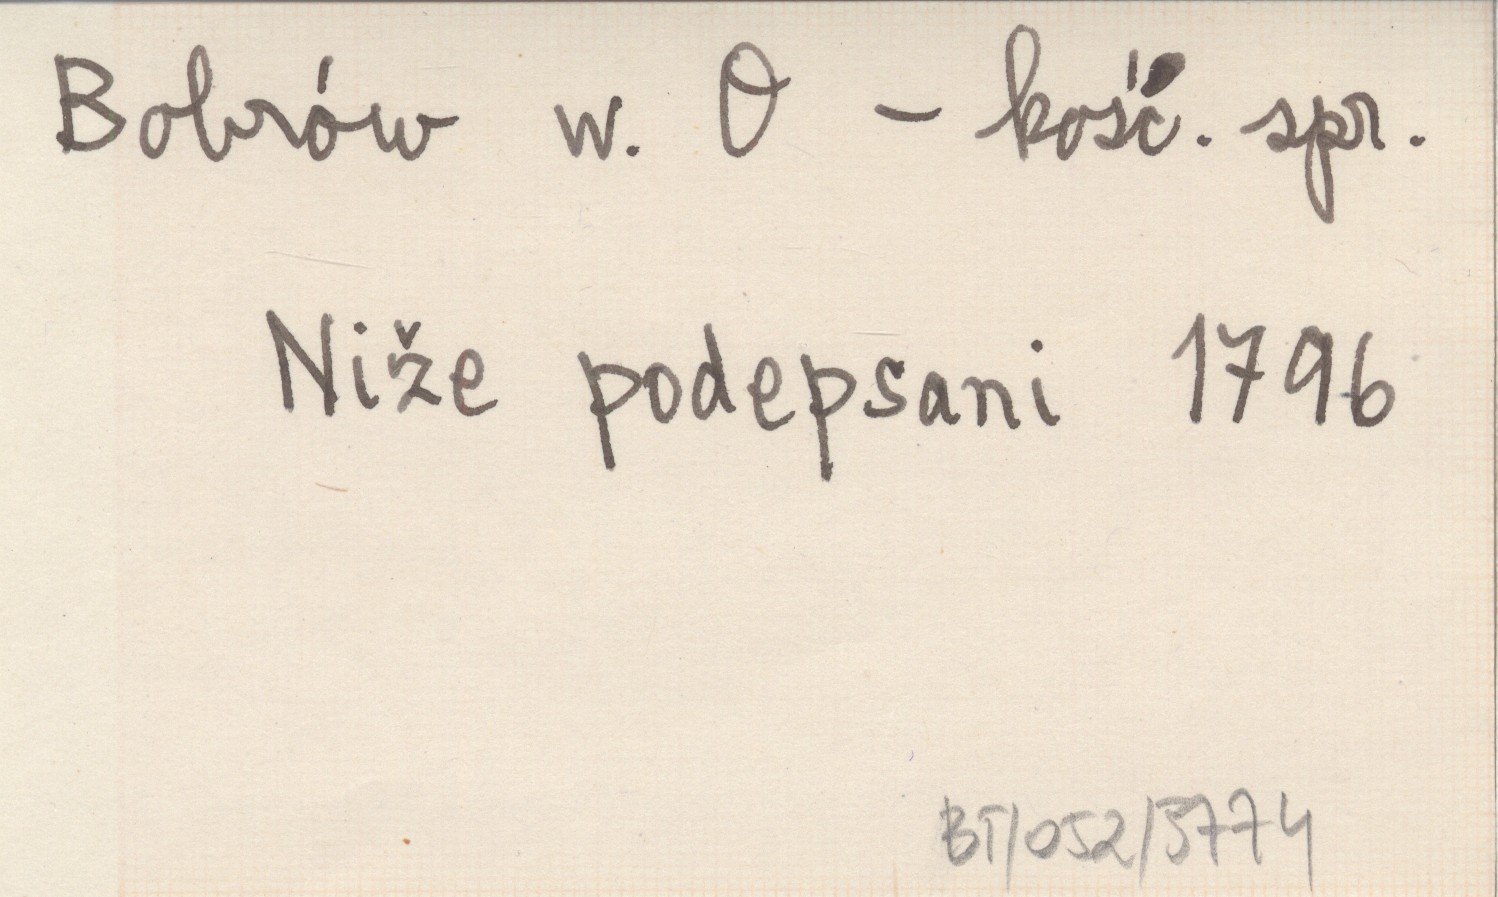 Bobrów w. O - kość. spr.
Niže podepsani 1796
BT/052/3774